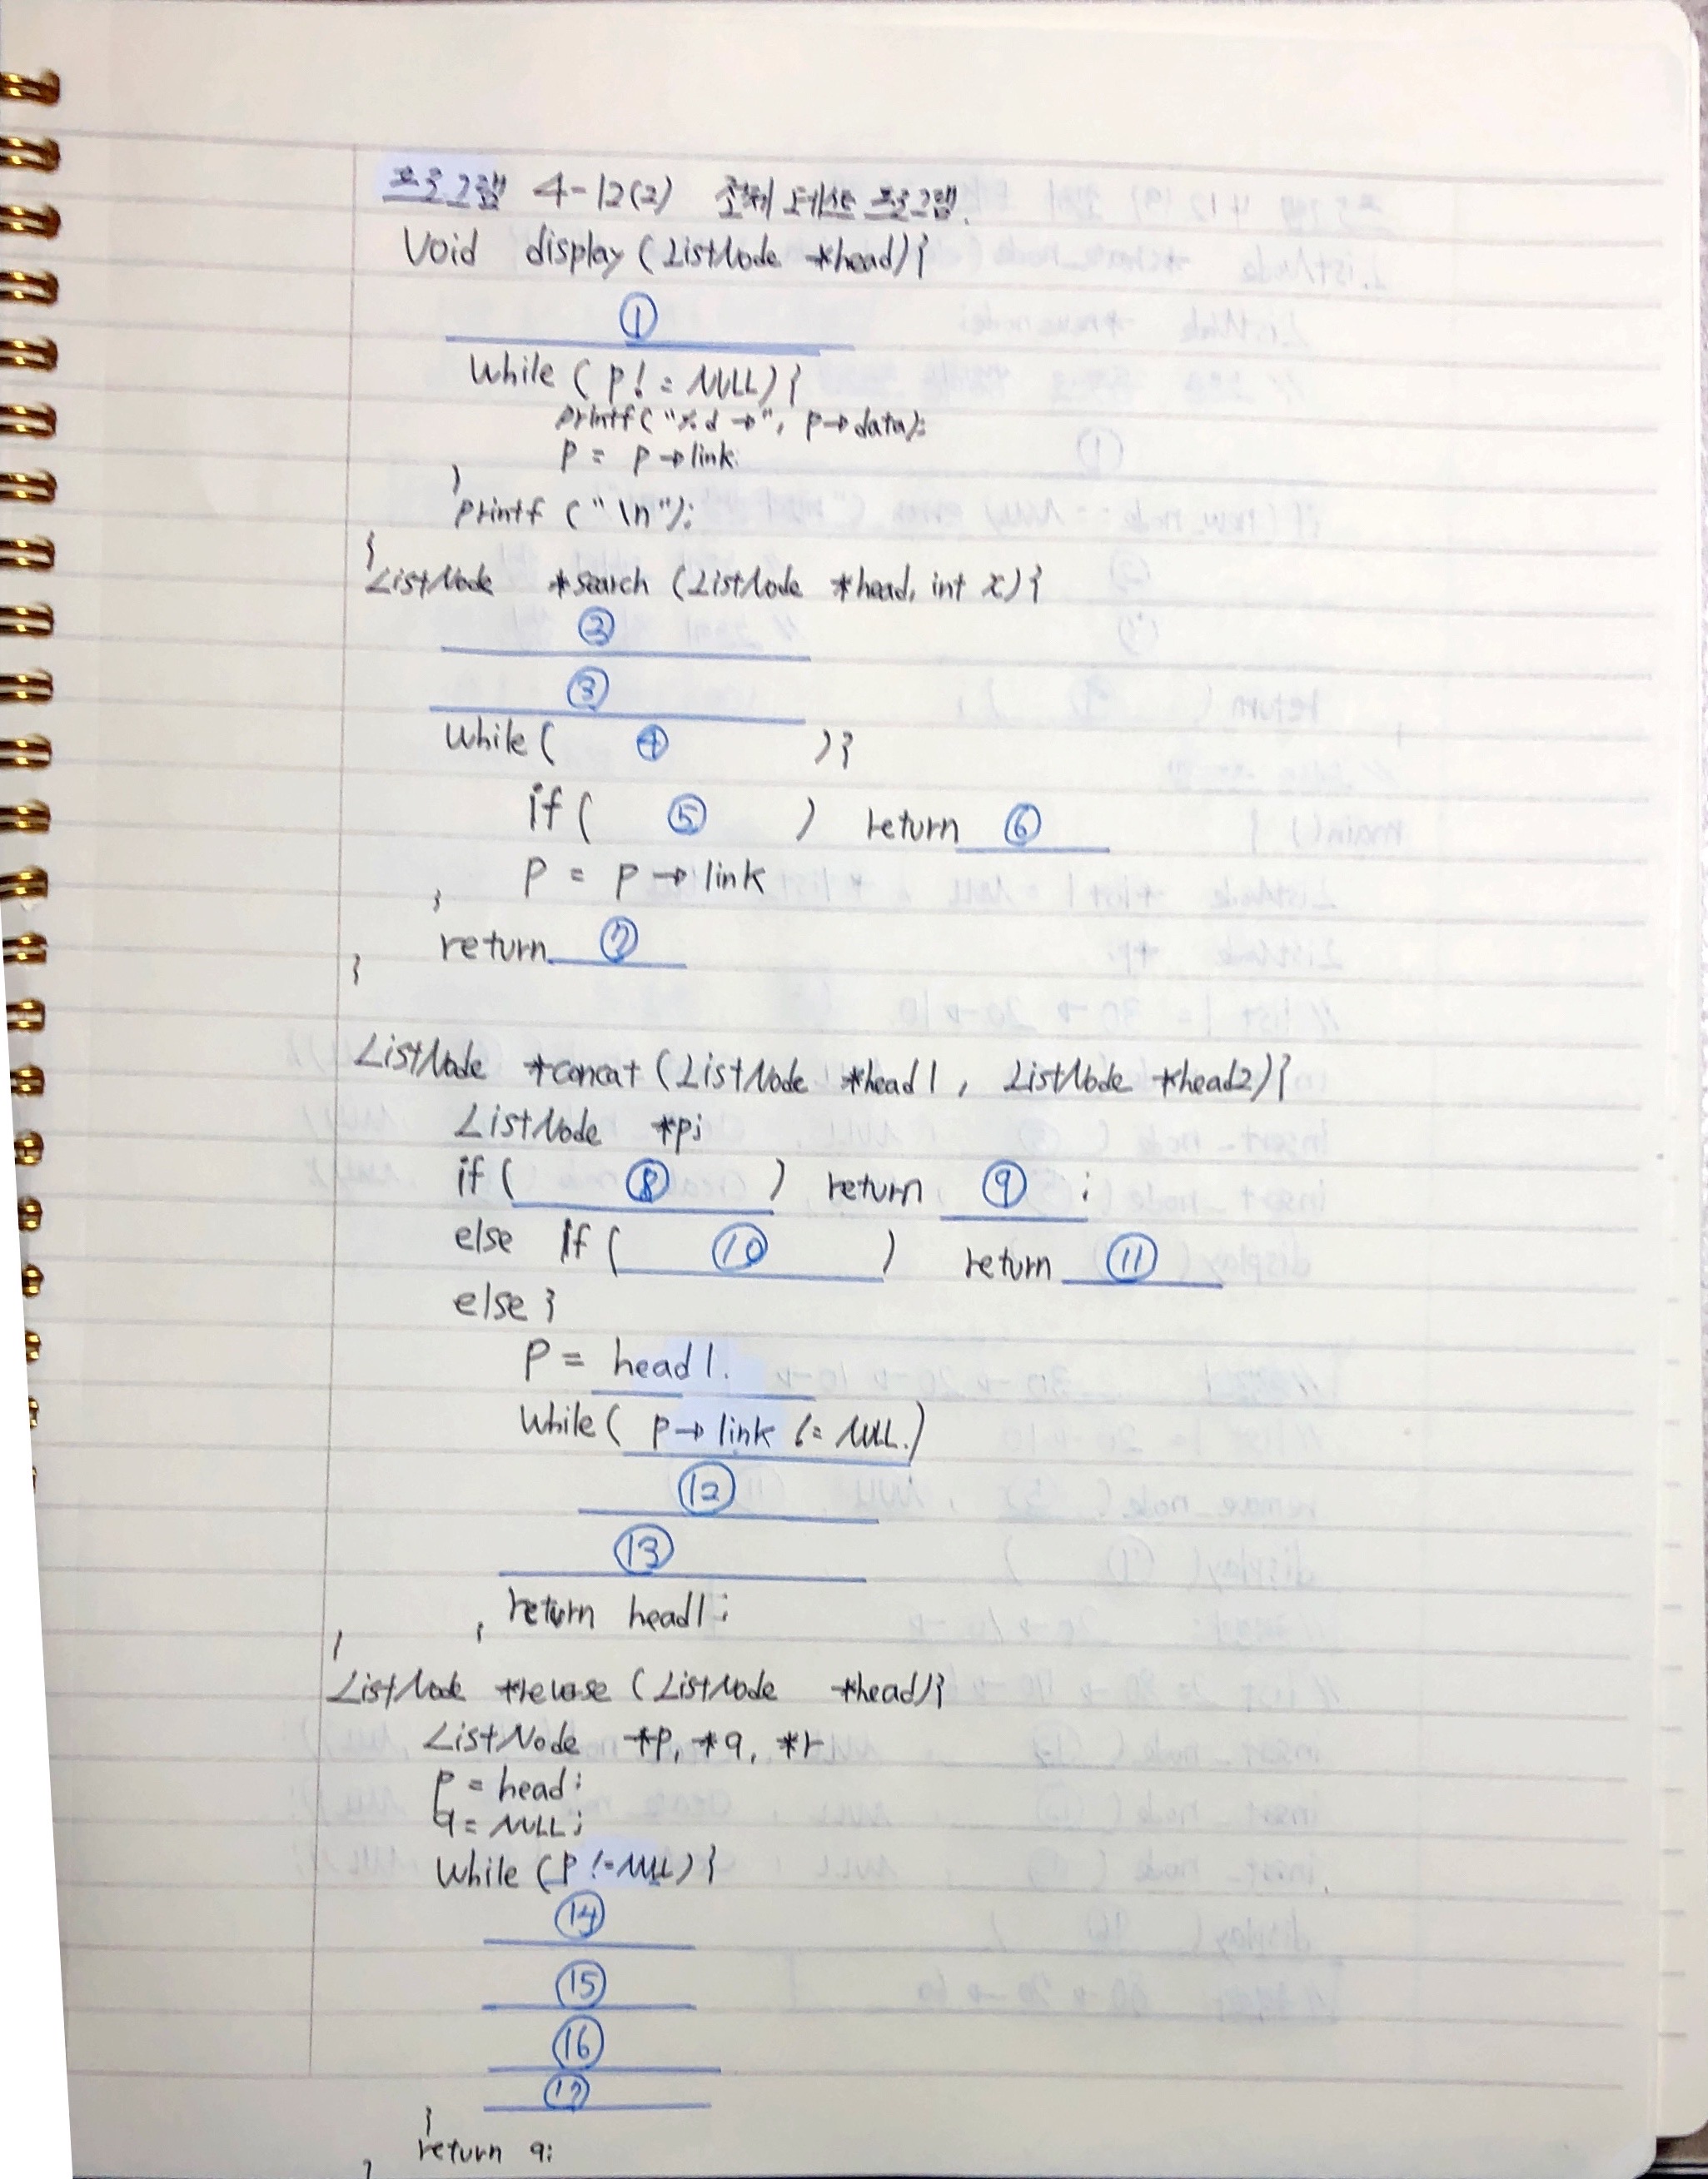 프로그램 4-12(2) 전체 테스트 프로그램.
Void display (ListNode *head){
①
While ( p! = NULL){
printf("%d →", p→data);
p = p→link.
}
printf ("\n");
}
ListNode *search (ListNode *head, int x){
②
③
While ( ④ ){
if ( ⑤ ) return ⑥
p = p→link
}
return ⑦
}
ListNode *concat (ListNode *head1, ListNode *head2){
ListNode *p;
if ( ⑧ ) return ⑨ ;
else if ( ⑩ ) return ⑪
else {
p = head1.
While ( p→link != NULL.)
⑫
⑬
return head1;
}
}
ListNode *reverse (ListNode *head){
ListNode *p, *q, *r
p = head;
q = NULL;
While (p != NULL){
⑭
⑮
⑯
⑰
}
return q;
}